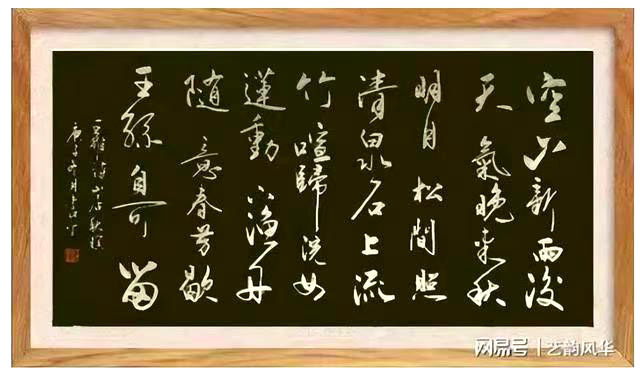 空山新雨後
天氣晚来秋
明月松間照
清泉石上流
竹喧歸浣女
蓮動下漁舟
随意春芳歇
王孫自可留
王維詩山居秋暝
庚子
网易号 | 艺韵风华